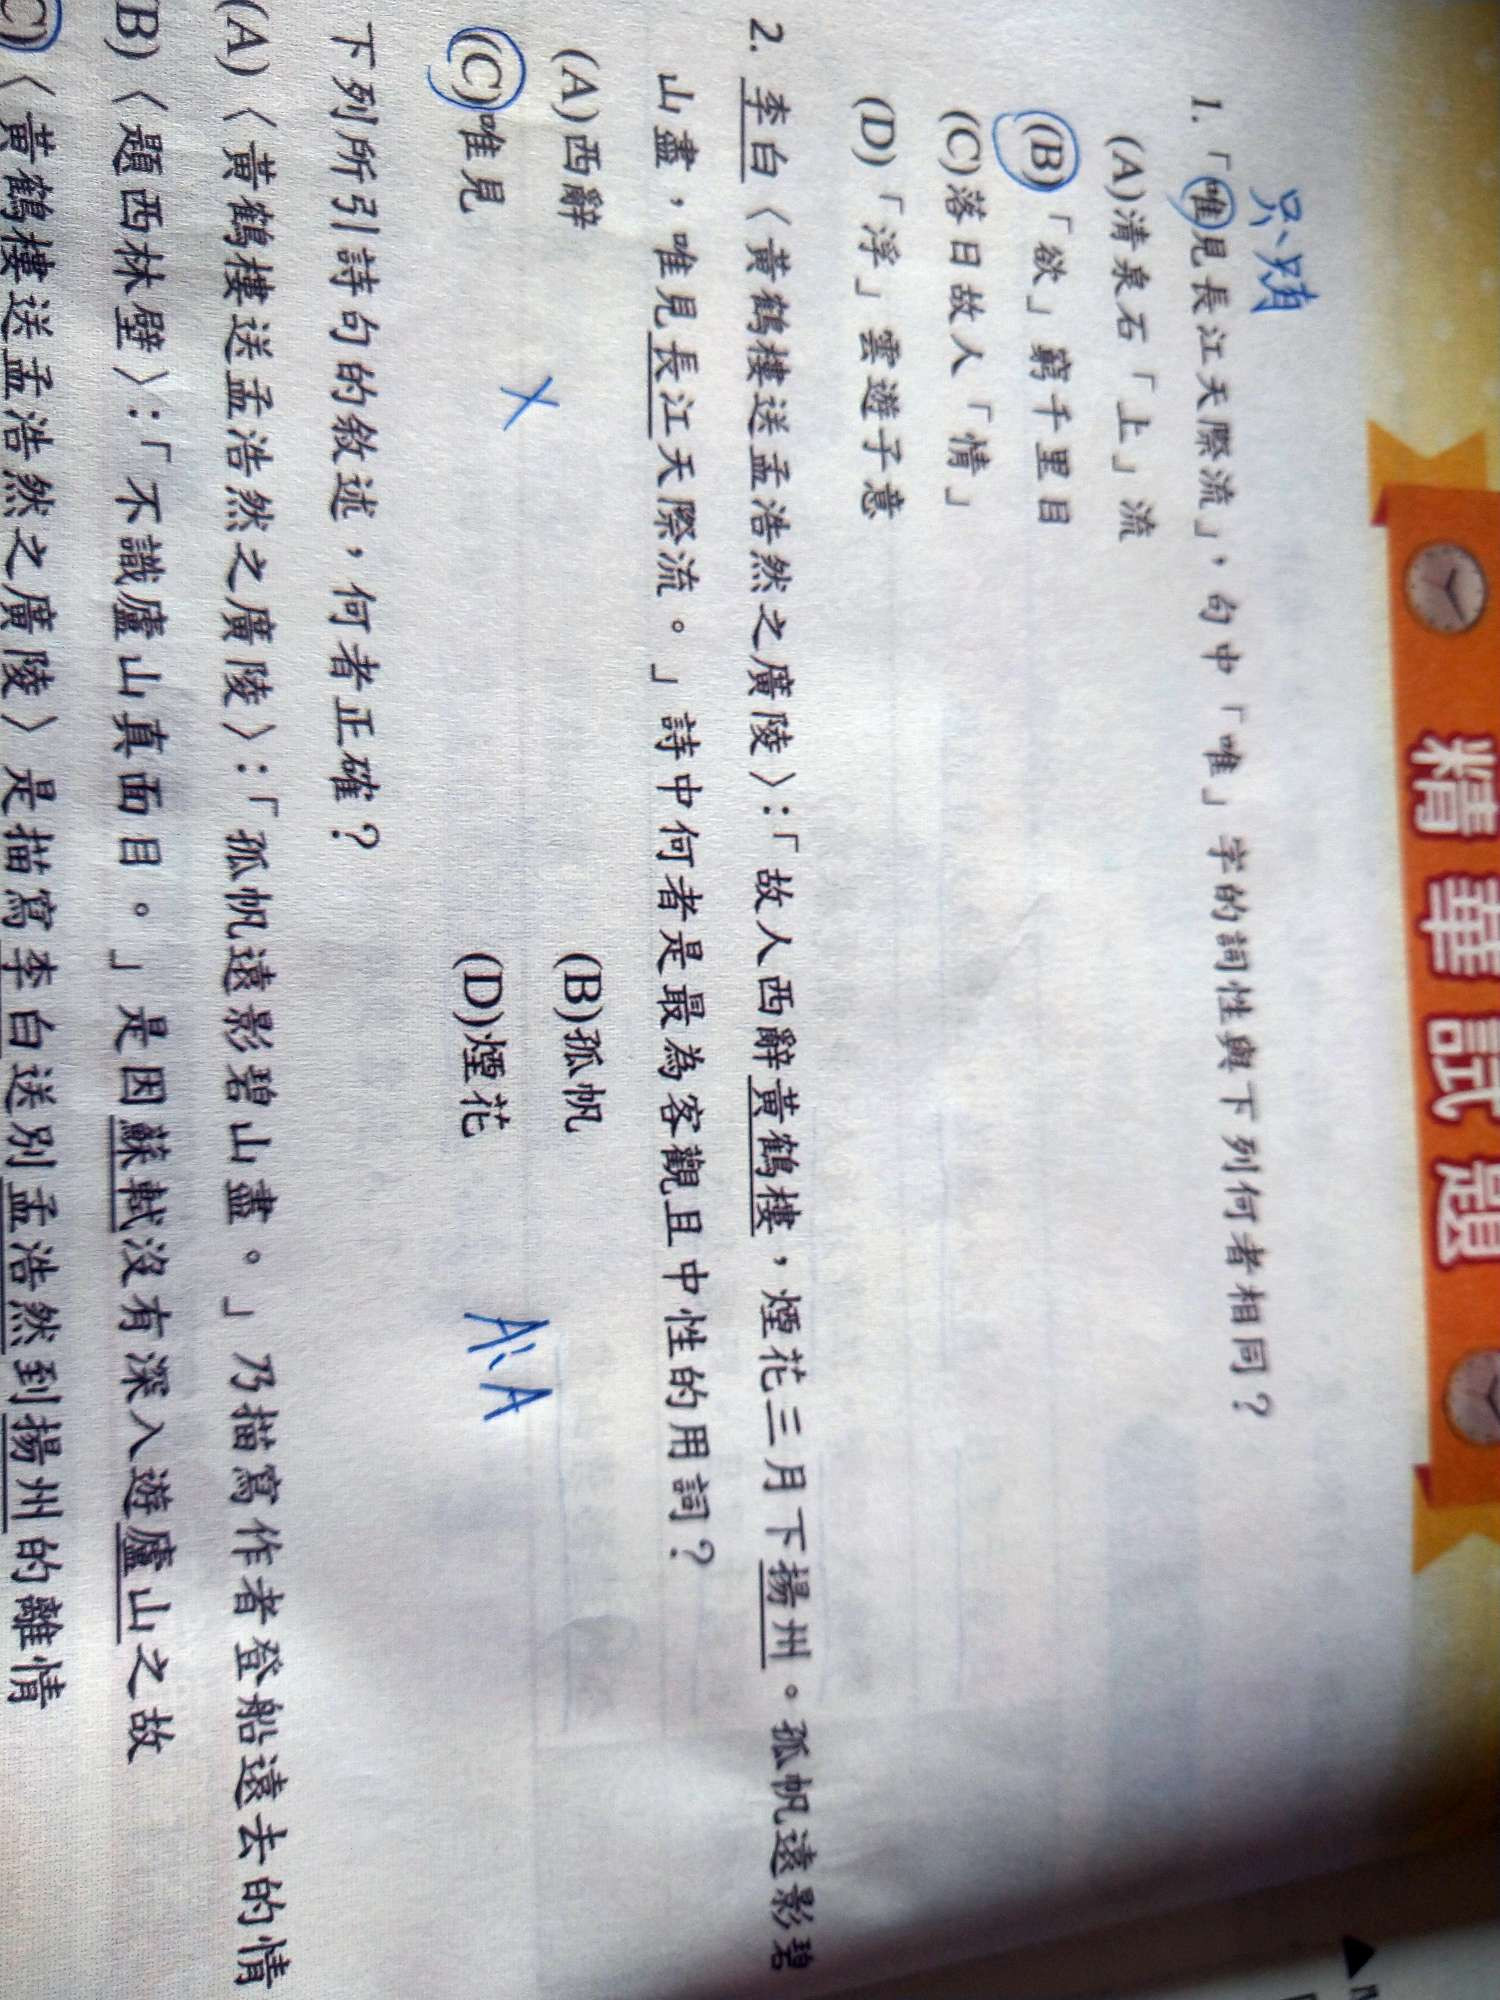 精華試題
只、只有
1.「唯見長江天際流」，句中「唯」字的詞性與下列何者相同？
(A)清泉石「上」流
(B)「欲」窮千里目
(C)落日故人「情」
(D)「浮」雲遊子意
2. 李白〈黃鶴樓送孟浩然之廣陵〉：「故人西辭黃鶴樓，煙花三月下揚州。孤帆遠影碧
山盡，唯見長江天際流。」詩中何者是最為客觀且中性的用詞？
(A)西辭 (B)孤帆
(C)唯見 (D)煙花
下列所引詩句的敘述，何者正確？
(A)〈黃鶴樓送孟浩然之廣陵〉：「孤帆遠影碧山盡。」乃描寫作者登船遠去的情
B)〈題西林壁〉：「不識廬山真面目。」是因蘇軾沒有深入遊廬山之故
C)〈黃鶴樓送孟浩然之廣陵〉是描寫李白送別孟浩然到揚州的離情